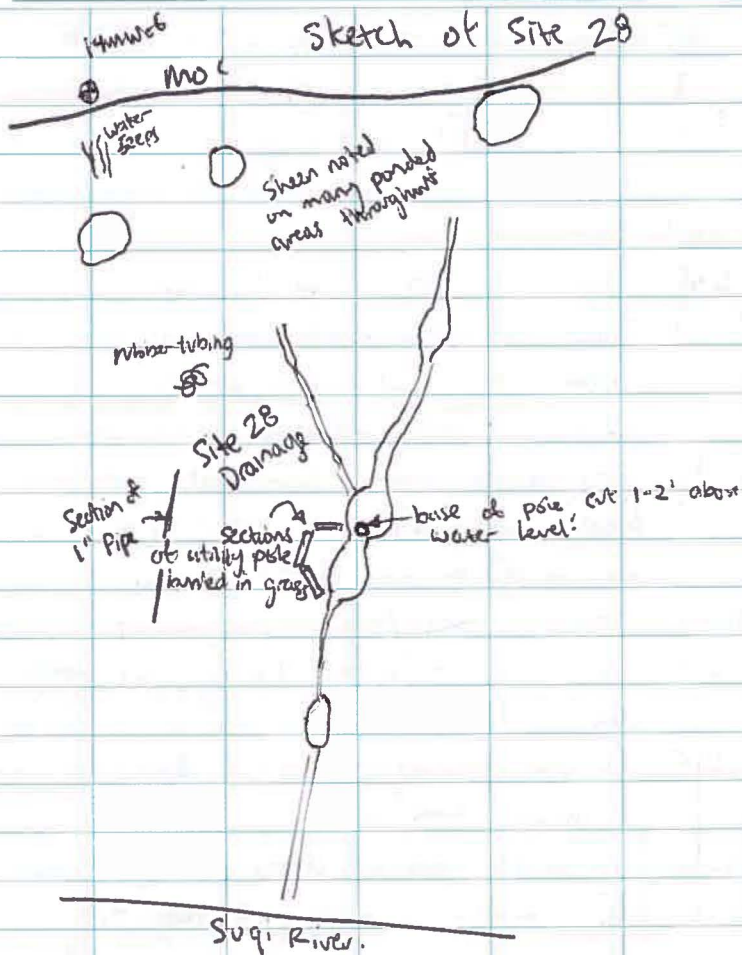 Sketch of Site 28
14MW06
MOC
water
seeps
Sheen noted
on many ponded
areas throughout
rubber tubing
Site 28
Drainage
Section of
1" Pipe
sections
of utility pole
burried in grass
base of pole cut 1-2' above
water level.
Suqi River.